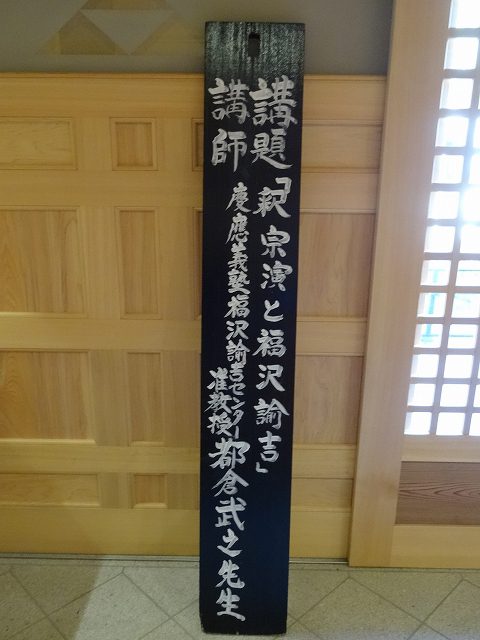 講題「釈宗演と福沢諭吉」
講師 慶應義塾福沢諭吉センター准教授 都倉武之先生